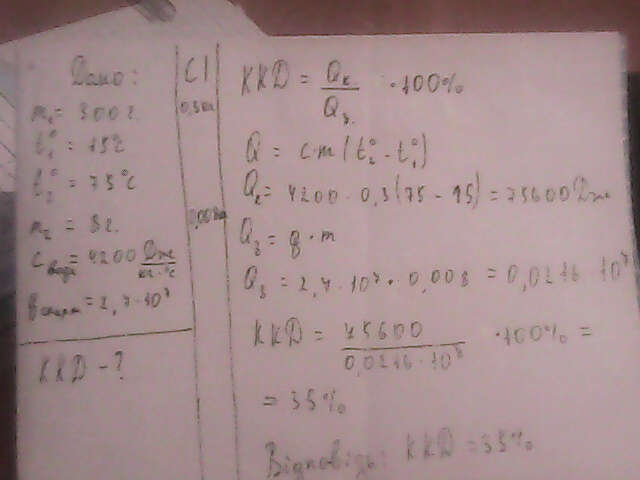 Дано:
m₁ = 300 г.
t₁° = 15°
t₂° = 75°C
m₂ = 8 г.
c води = 4200 Дж/кг·°C
q спирт = 2,7·10⁷
ККД - ?
СІ
0,3 кг
0,008 кг
ККД = Qк./Qз. · 100%
Q = c·m(t₂° - t₁°)
Qк = 4200 · 0,3(75 - 15) = 75600 Дж
Qз = q · m
Qз = 2,7 · 10⁷ · 0,008 = 0,0216 · 10⁷
ККД = 75600/0,0216·10⁷ · 100% =
= 35%
Відповідь: ККД = 35%